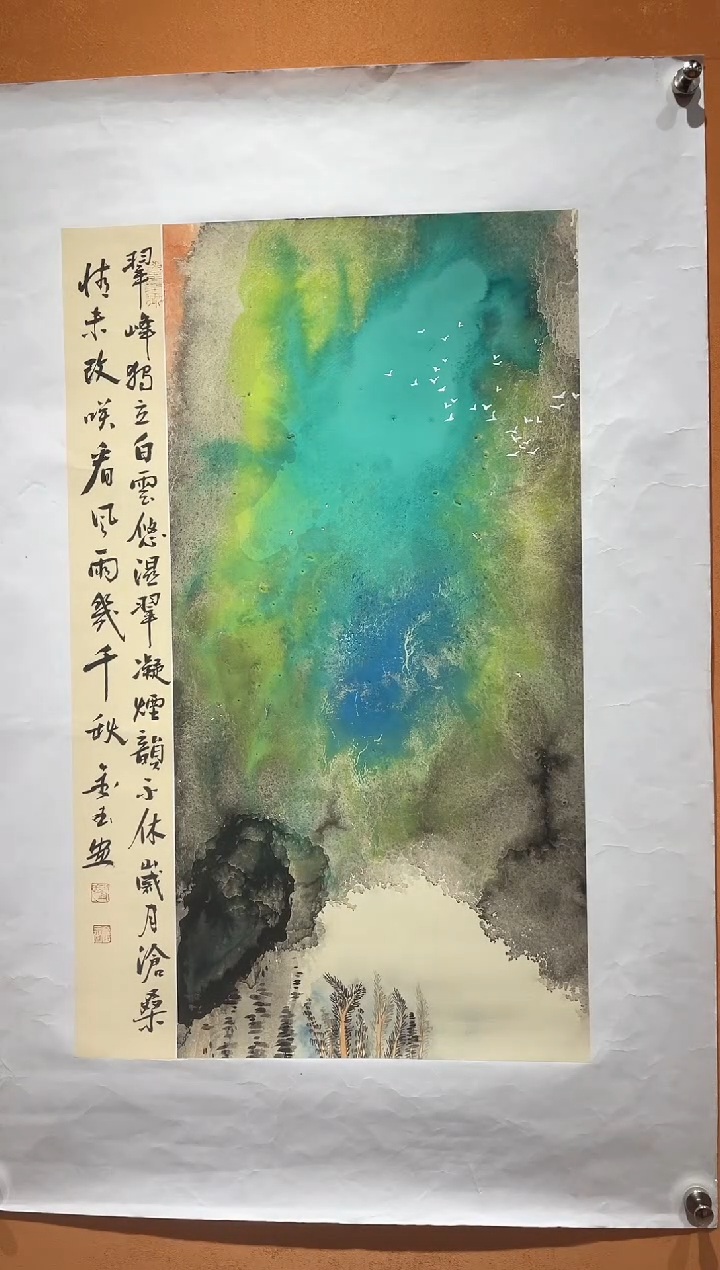 翠峰獨立白雲悠濕翠凝煙韻不休歲月滄桑
情未改咲看風雨幾千秋金玉安